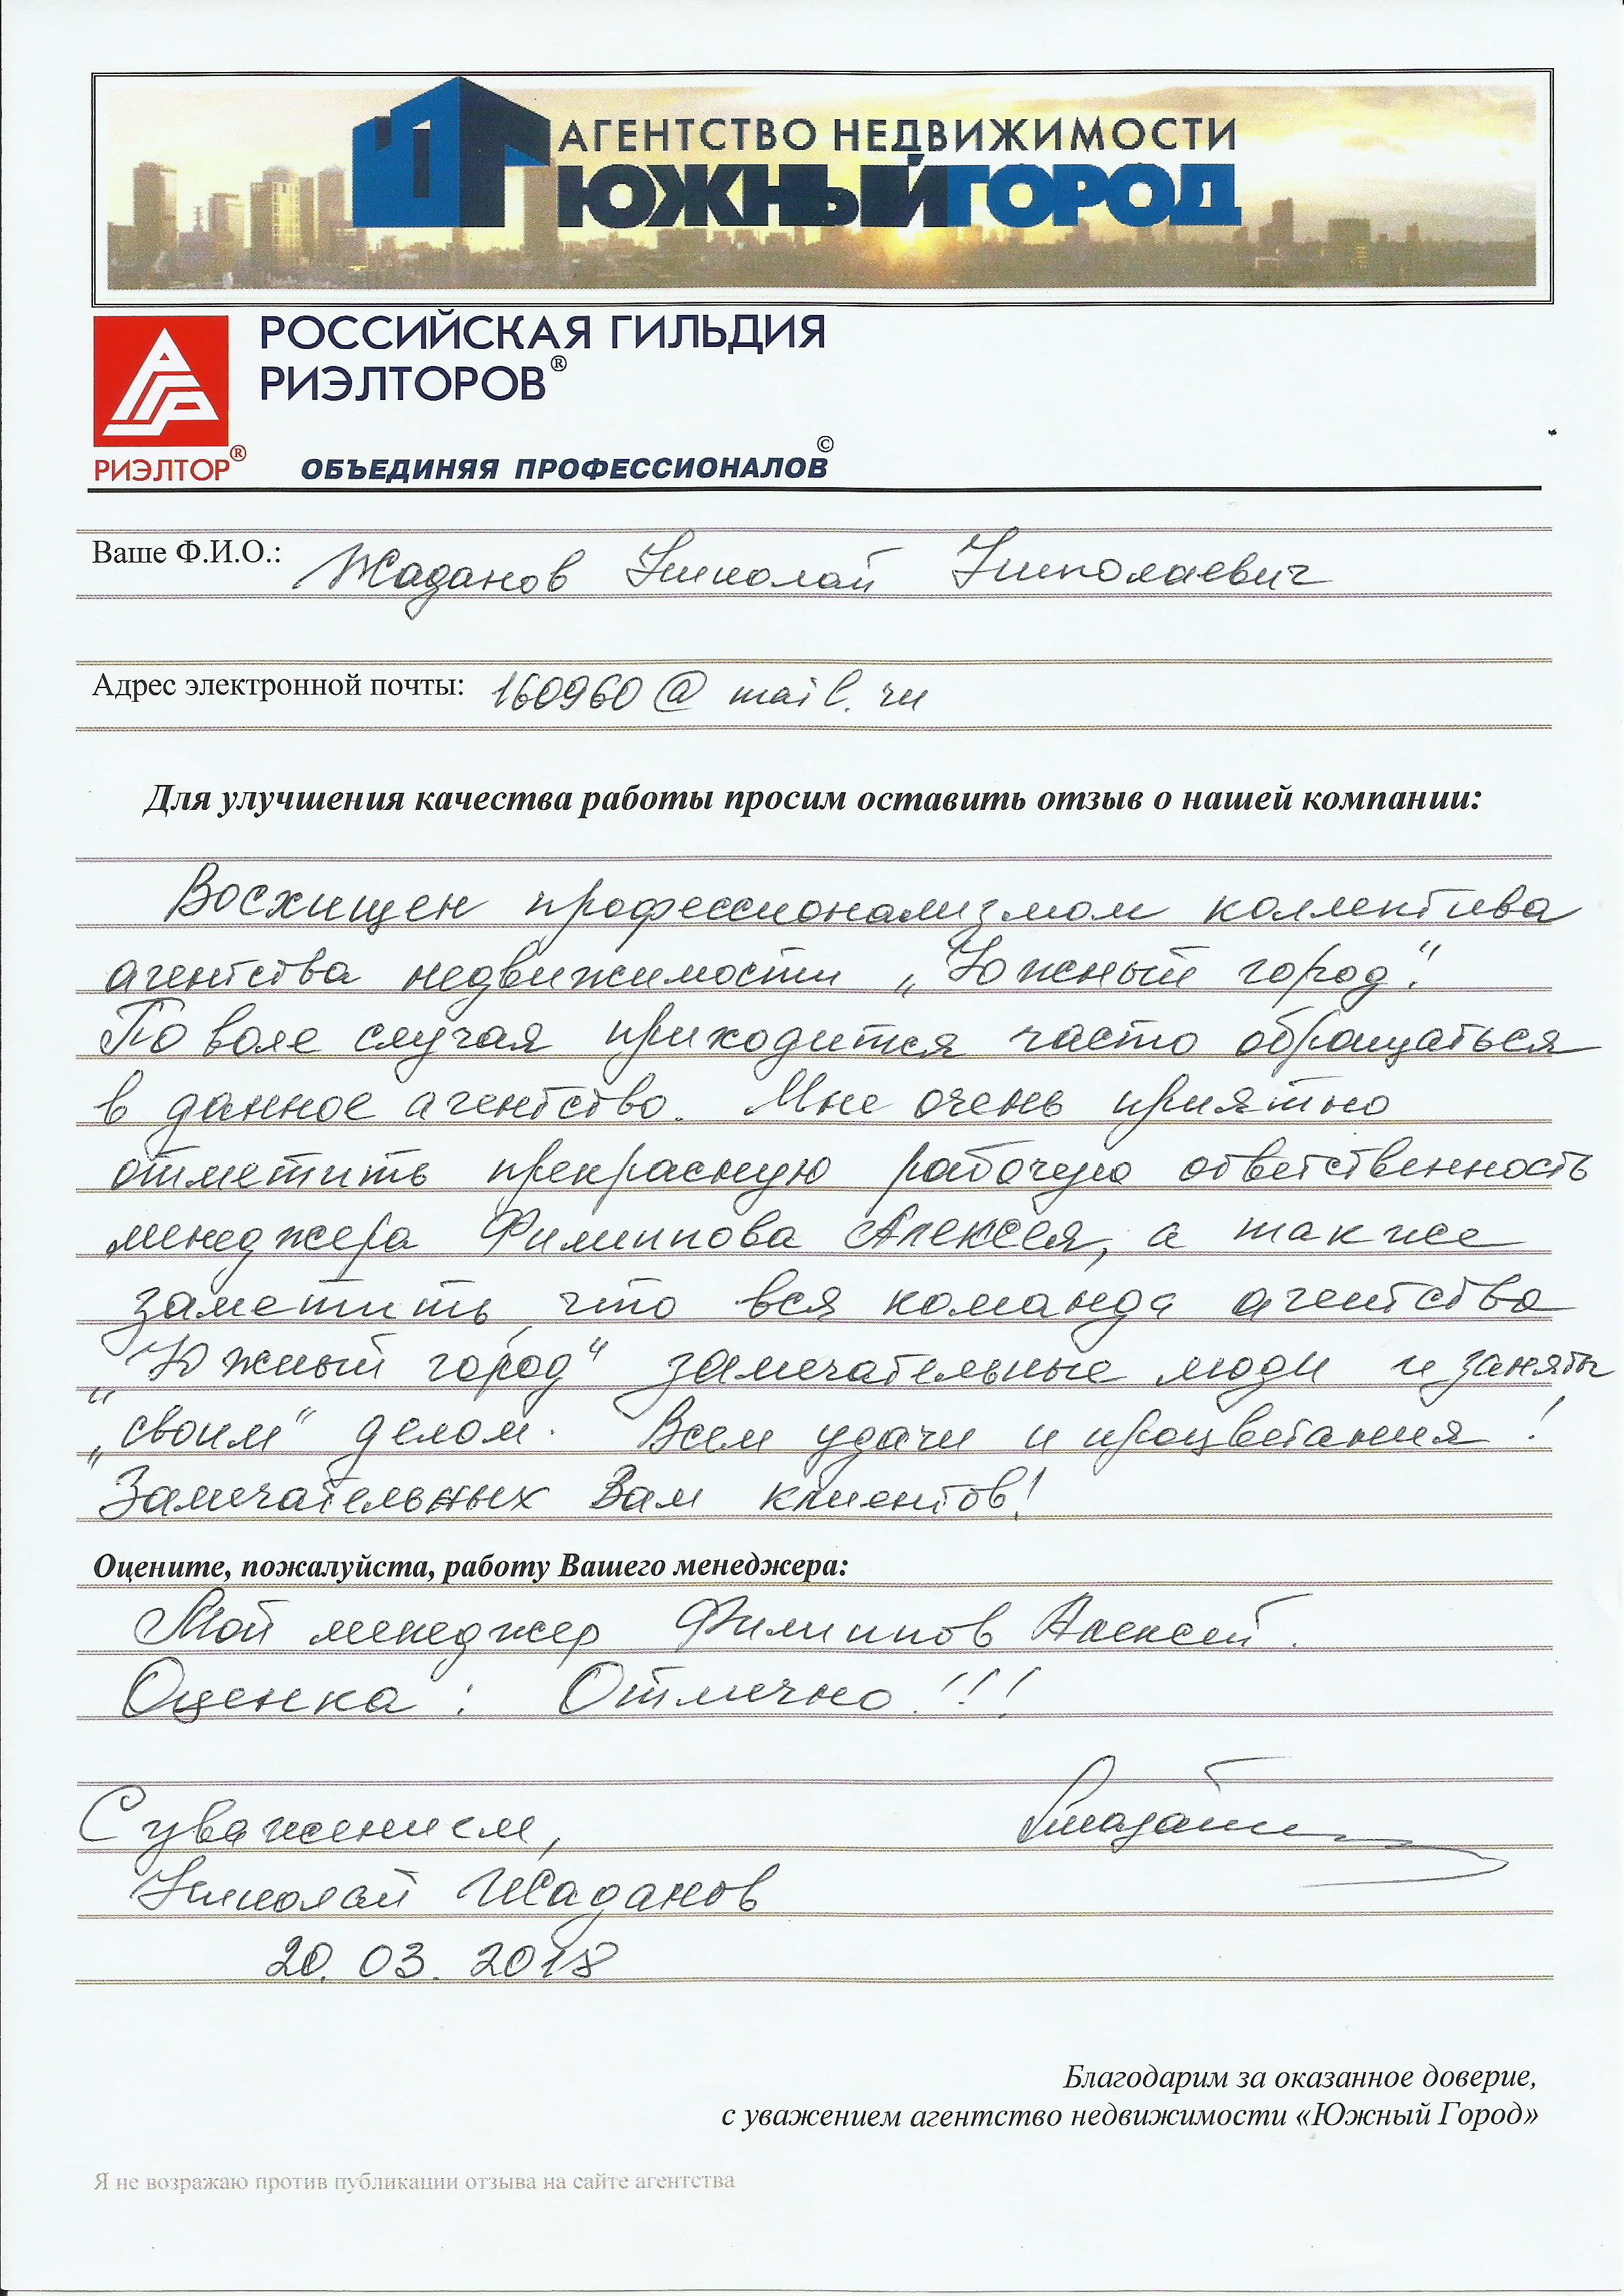 АГЕНТСТВО НЕДВИЖИМОСТИ
ЮЖНЫЙГОРОД
РОССИЙСКАЯ ГИЛЬДИЯ
РИЭЛТОРОВ®
РИЭЛТОР®
ОБЪЕДИНЯЯ ПРОФЕССИОНАЛОВ©
Ваше Ф.И.О.: Жаданов Николай Николаевич
Адрес электронной почты: 160960@mail.ru
Для улучшения качества работы просим оставить отзыв о нашей компании:
Восхищен профессионализмом коллектива
агентства недвижимости „Южный город“.
По воле случая приходится часто обращаться
в данное агентство. Мне очень приятно
отметить прекрасную рабочую ответственность
менеджера Филиппова Алексея, а также
заметить, что вся команда агентства
„Южный город“ замечательные люди и заняты
„своим“ делом. Всем удачи и процветания!
Замечательных Вам клиентов!
Оцените, пожалуйста, работу Вашего менеджера:
Мой менеджер Филиппов Алексей.
Оценка: Отлично!!!
С уважением,
Николай Жаданов
20.03.2018
Благодарим за оказанное доверие,
с уважением агентство недвижимости «Южный Город»
Я не возражаю против публикации отзыва на сайте агентства